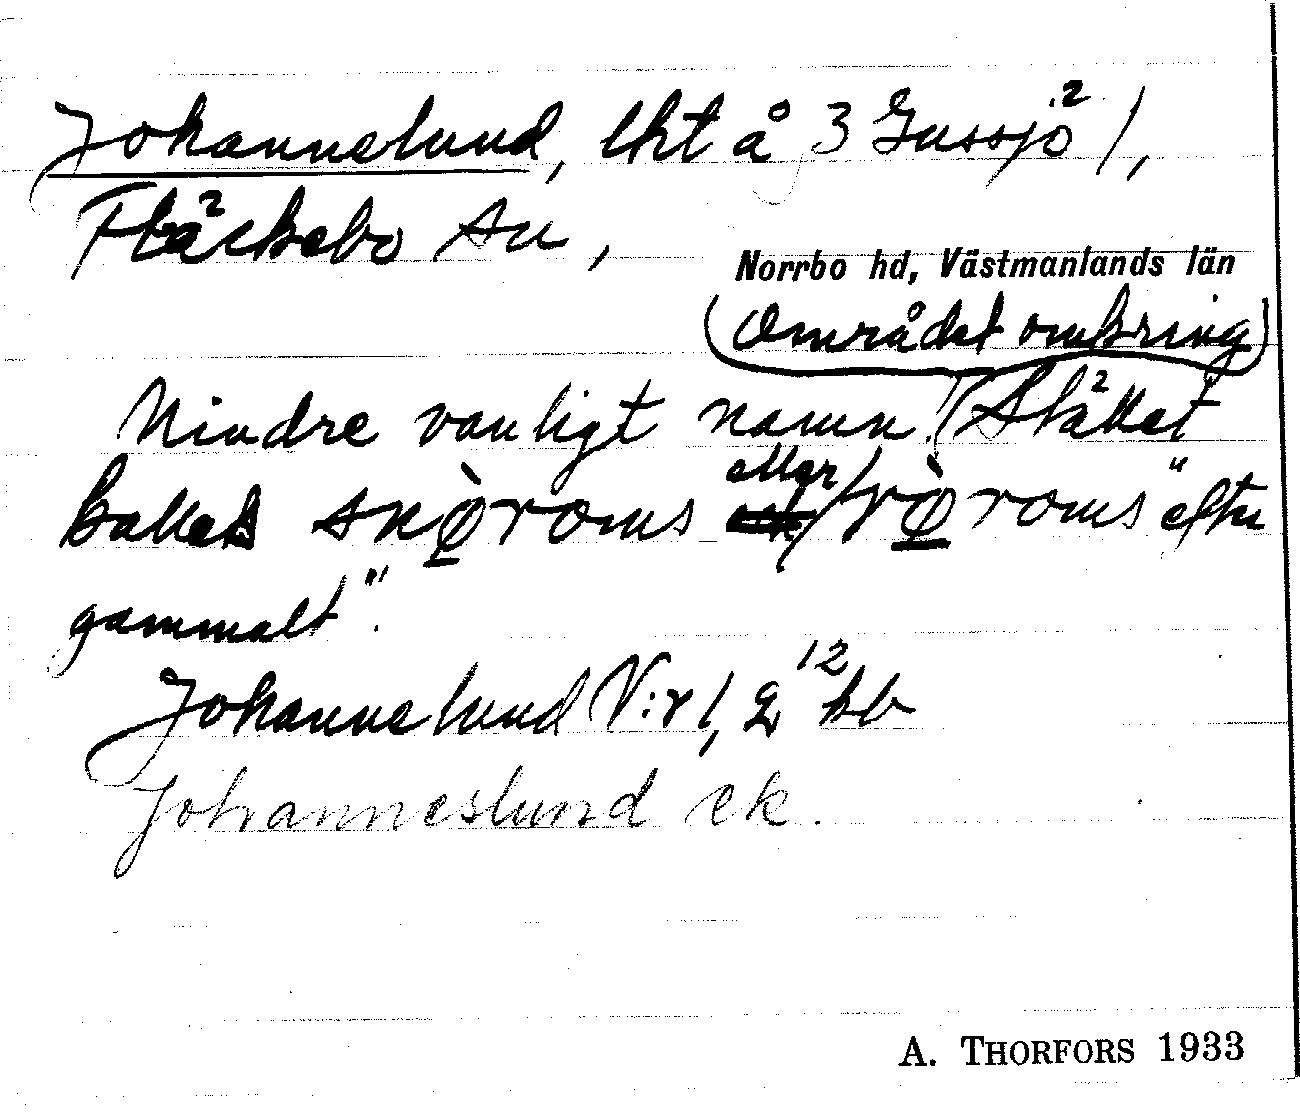 Johannelund, lht å 3 Gussjö /,
Fläckebo sn,
Norrbo hd, Västmanlands län
(Området omkring)
Mindre vanligt namn. (Stället
kallas snø̀roms eller /rø̀roms "efter
gammalt".
Johannelund V:r l, g 12 kb
Johanneslund ek.
A. THORFORS 1933